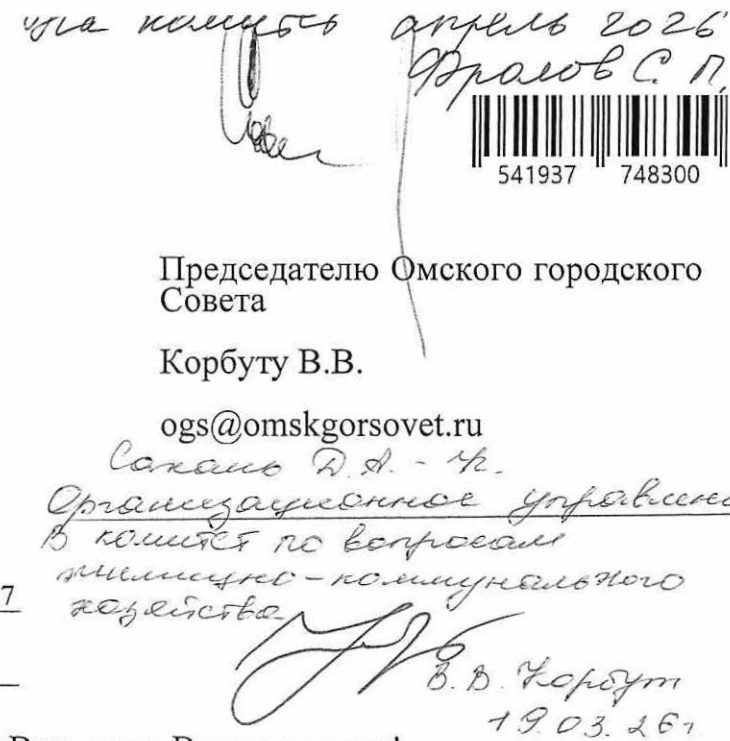 на комитет апрель 2026
Фролов С. П.
541937 748300
Председателю Омского городского
Совета
Корбуту В.В.
ogs@omskgorsovet.ru
Сакань Д.А. -
Организационное управлени
В комитет по вопросам
жилищно-коммунального
хозяйства
7
В.В. Корбут
19.03.26г